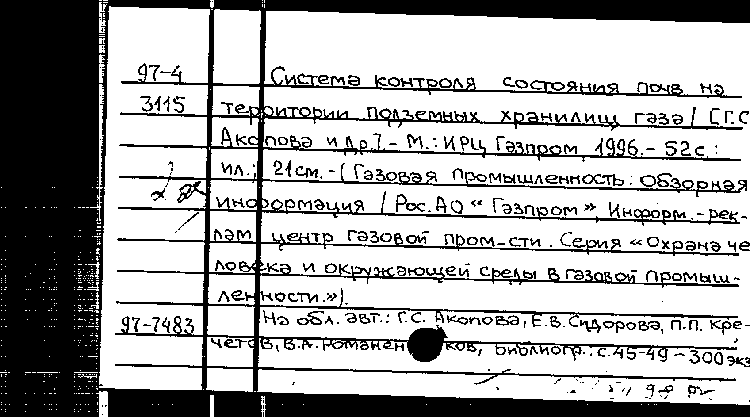 97-4 Система контроля состояния почв на
3115 территории подземных хранилищ газа / [Г.С
Акопова и др.] - М.: ИРЦ Газпром, 1996. - 52 с.:
ил.; 21 см. - (Газовая промышленность: Обзорная
информация / Рос. АО "Газпром", Информ.-рек-
лам. центр газовой пром-сти. Серия "Охрана че
ловека и окружающей среды в газовой промыш-
ленности.").
97-7483 На обл. авт.: Г.С. Акопова, Е.В. Сидорова, П.П. Кре-
четов, В.А. Романенков, Библиогр.: с. 45-49 - 300 экз